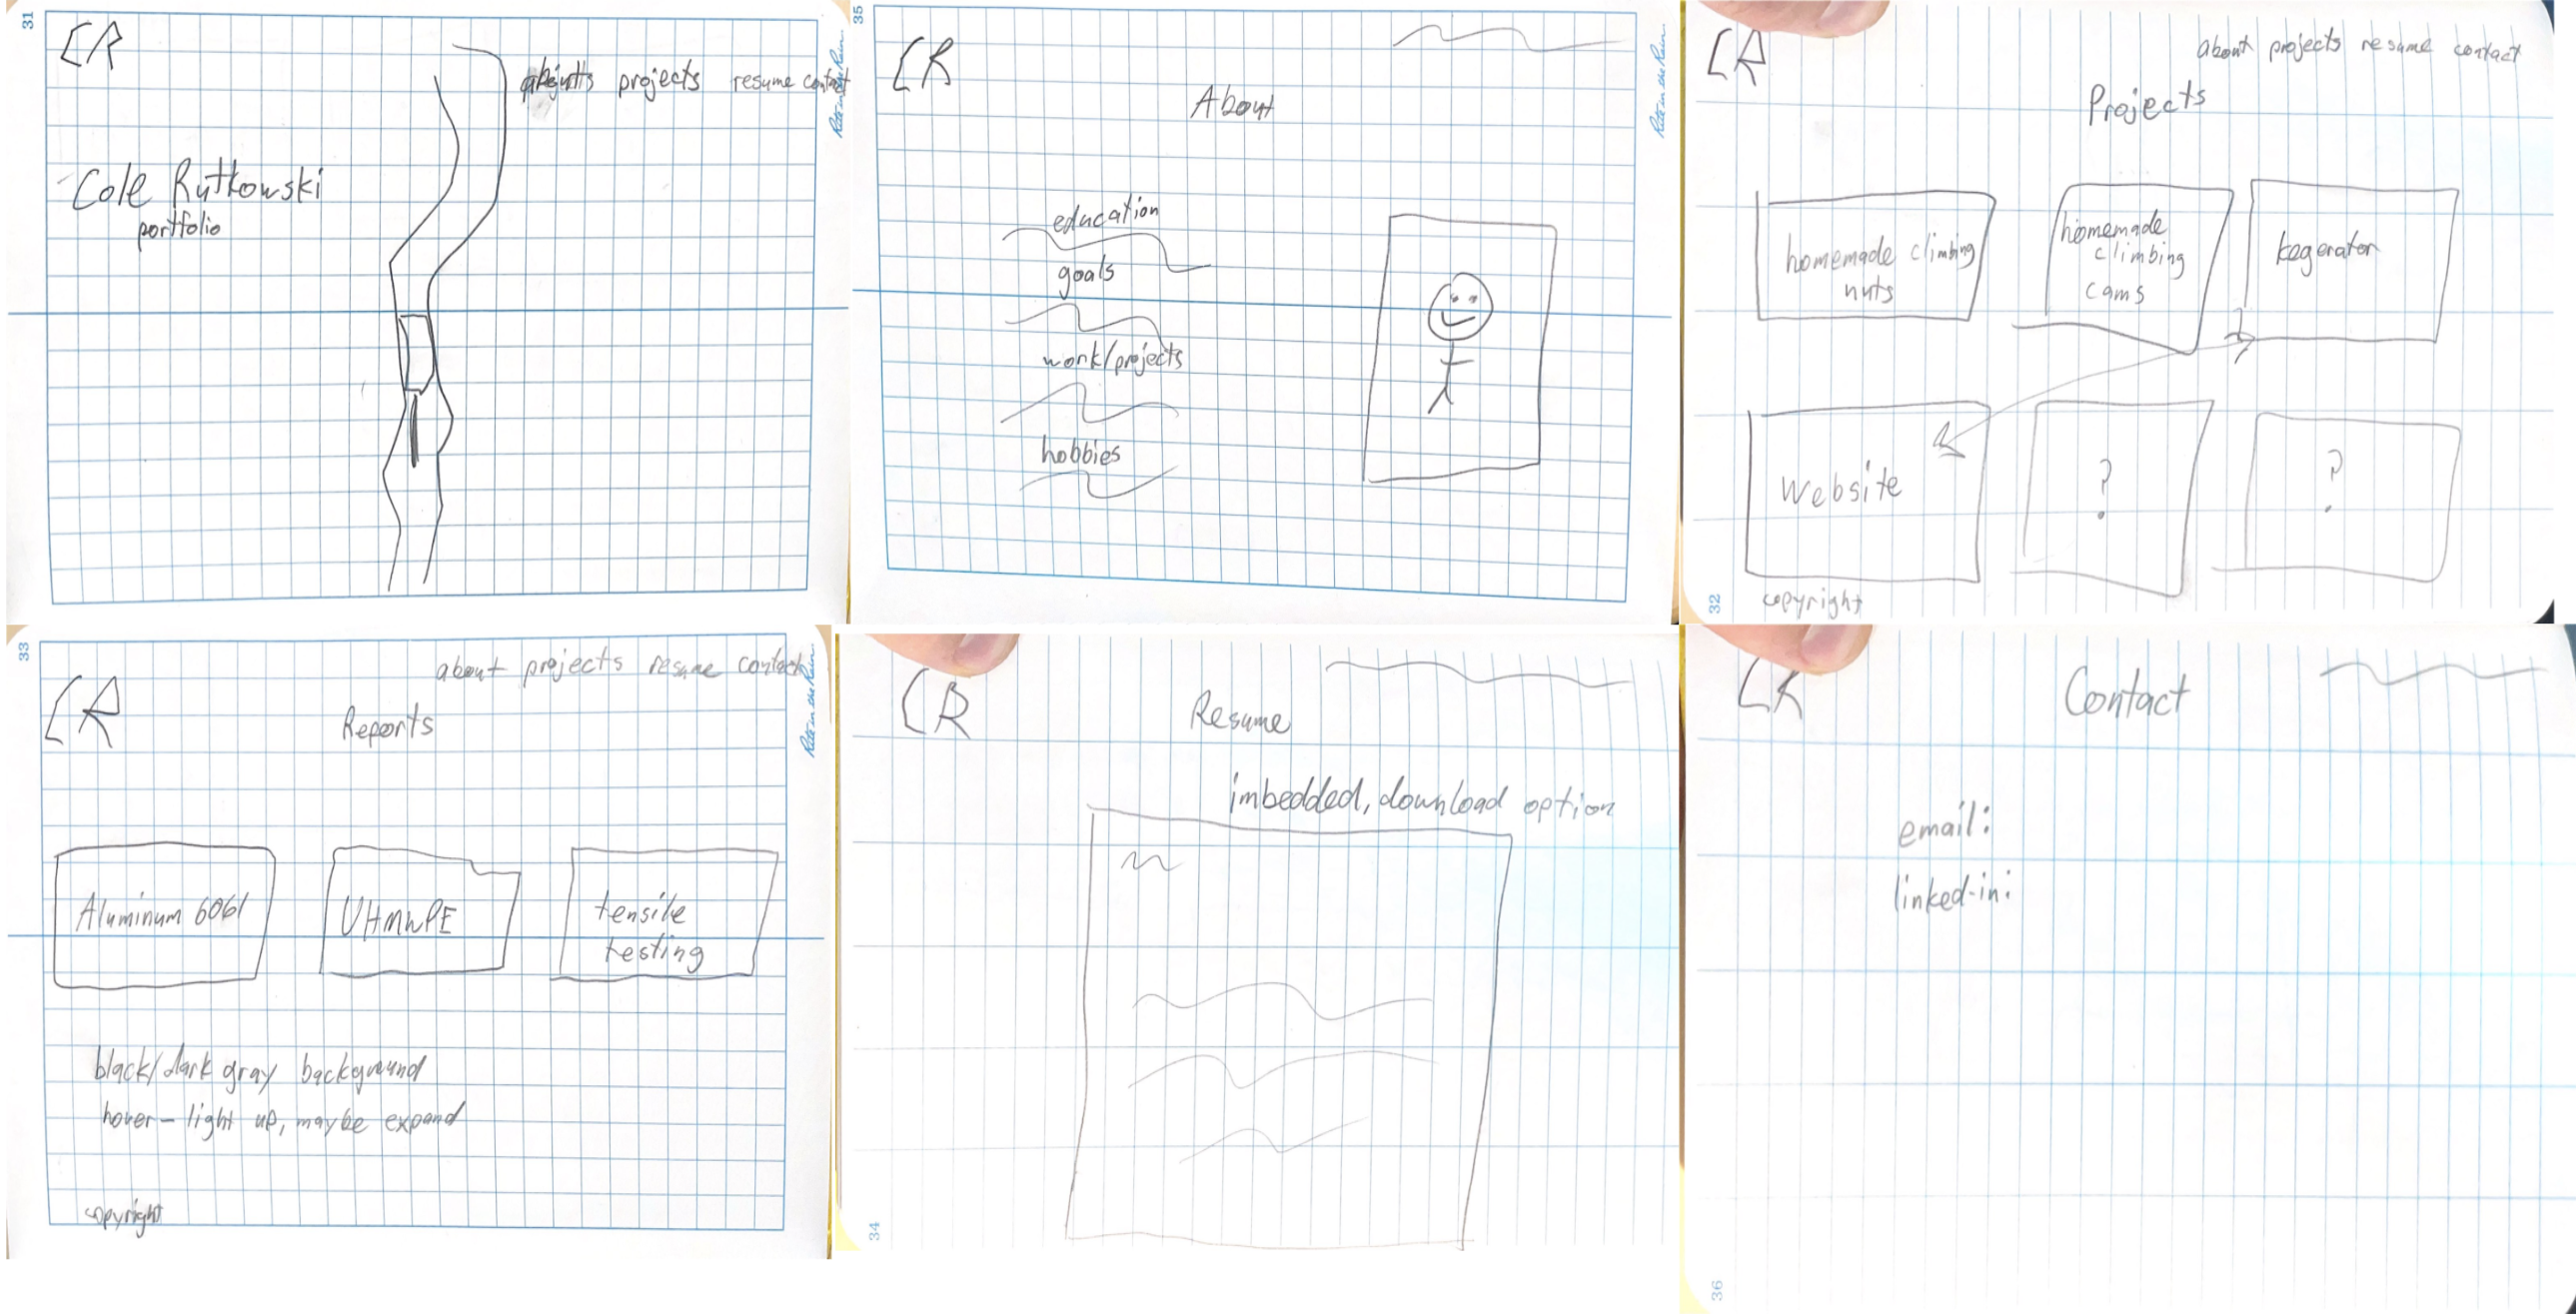 31
CR
projects resume contact
Rite in the Rain
Cole Rutkowski
portfolio
35
CR
Rite in the Rain
About
education
goals
work/projects
hobbies
CR
about projects resume contact
Projects
homemade climbing
nuts
homemade
climbing
cams
kegerator
Website
?
?
copyright
32
33
about projects resume contact
CR
Rite in the Rain
Reports
Aluminum 6061
UHMWPE
tensile
testing
black/dark gray background
hover - light up, maybe expand
copyright
CR
Resume
imbedded, download option
34
CR
Contact
email:
linked-in:
36